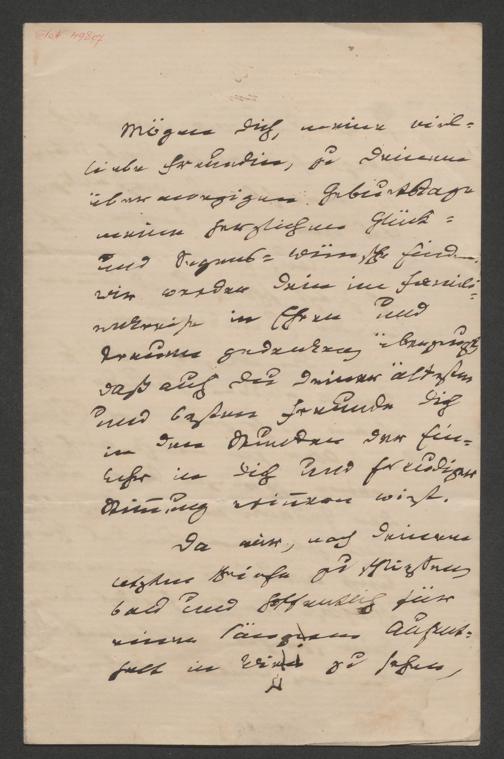 Mögen Dich, meine viel-
liebe Freundin, zu Deinem
übermorgigen Geburtstage
meine herzlichen Glück-
und Segens-wünsche finden.
wir werden Dein im Famili-
enkreise in Ehren und
Treuen gedenken, überzeugt
daß auch Du Deiner ältesten
und besten Freunde Dich
in den Stunden der Ein-
kehr in Dich und freudiger
Stimmung erinnern wirst.
Da wir, nach Deinem
letzten Briefe zu schließen,
bald und hoffentlich für
einen längern Aufent-
halt in Wien zu sehen,